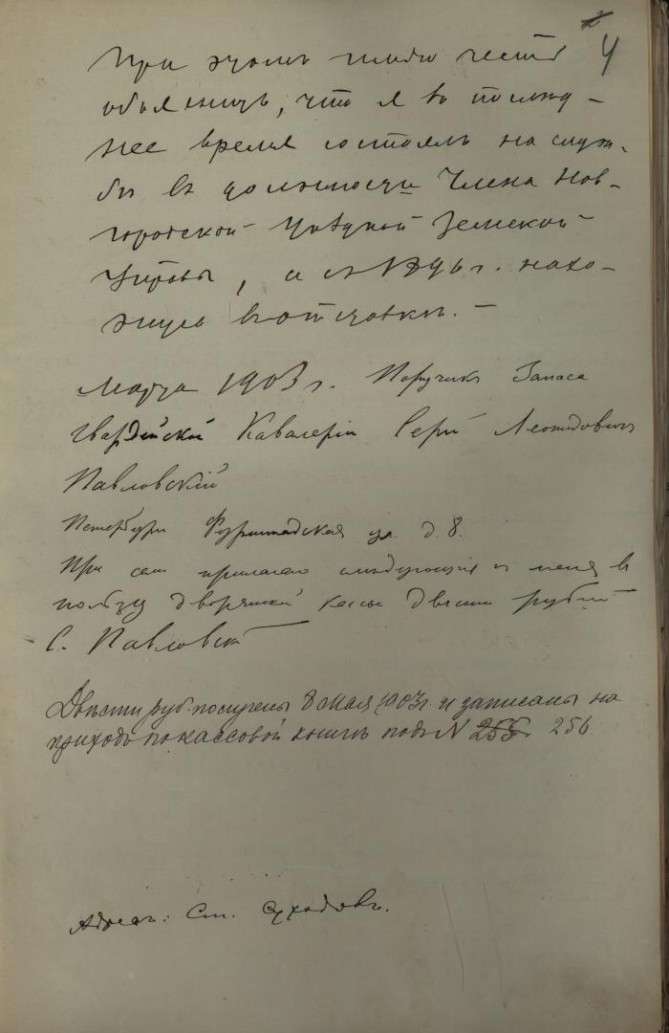 4
При этомъ имѣю честь
объяснить, что я въ послѣд-
нее время состоялъ на служ-
бѣ въ должности Члена Нов-
городской Уѣздной Земской
Управы, а съ 1896 г. нахо-
жусь въ отставкѣ. —
Марта 1903 г. Поручикъ Запаса
Гвардейской Кавалеріи Сергѣй Леонидовичъ
Павловскій
Петербургъ Фурштадская ул. д. 8.
При семъ прилагаю слѣдующія съ меня въ
пользу дворянской кассы двѣсти рублей
С. Павловскій
Двѣсти руб. получены 8 мая 1903 г. и записаны на
приходъ по кассовой книгѣ подъ N 255 256
Адресъ: Ст.